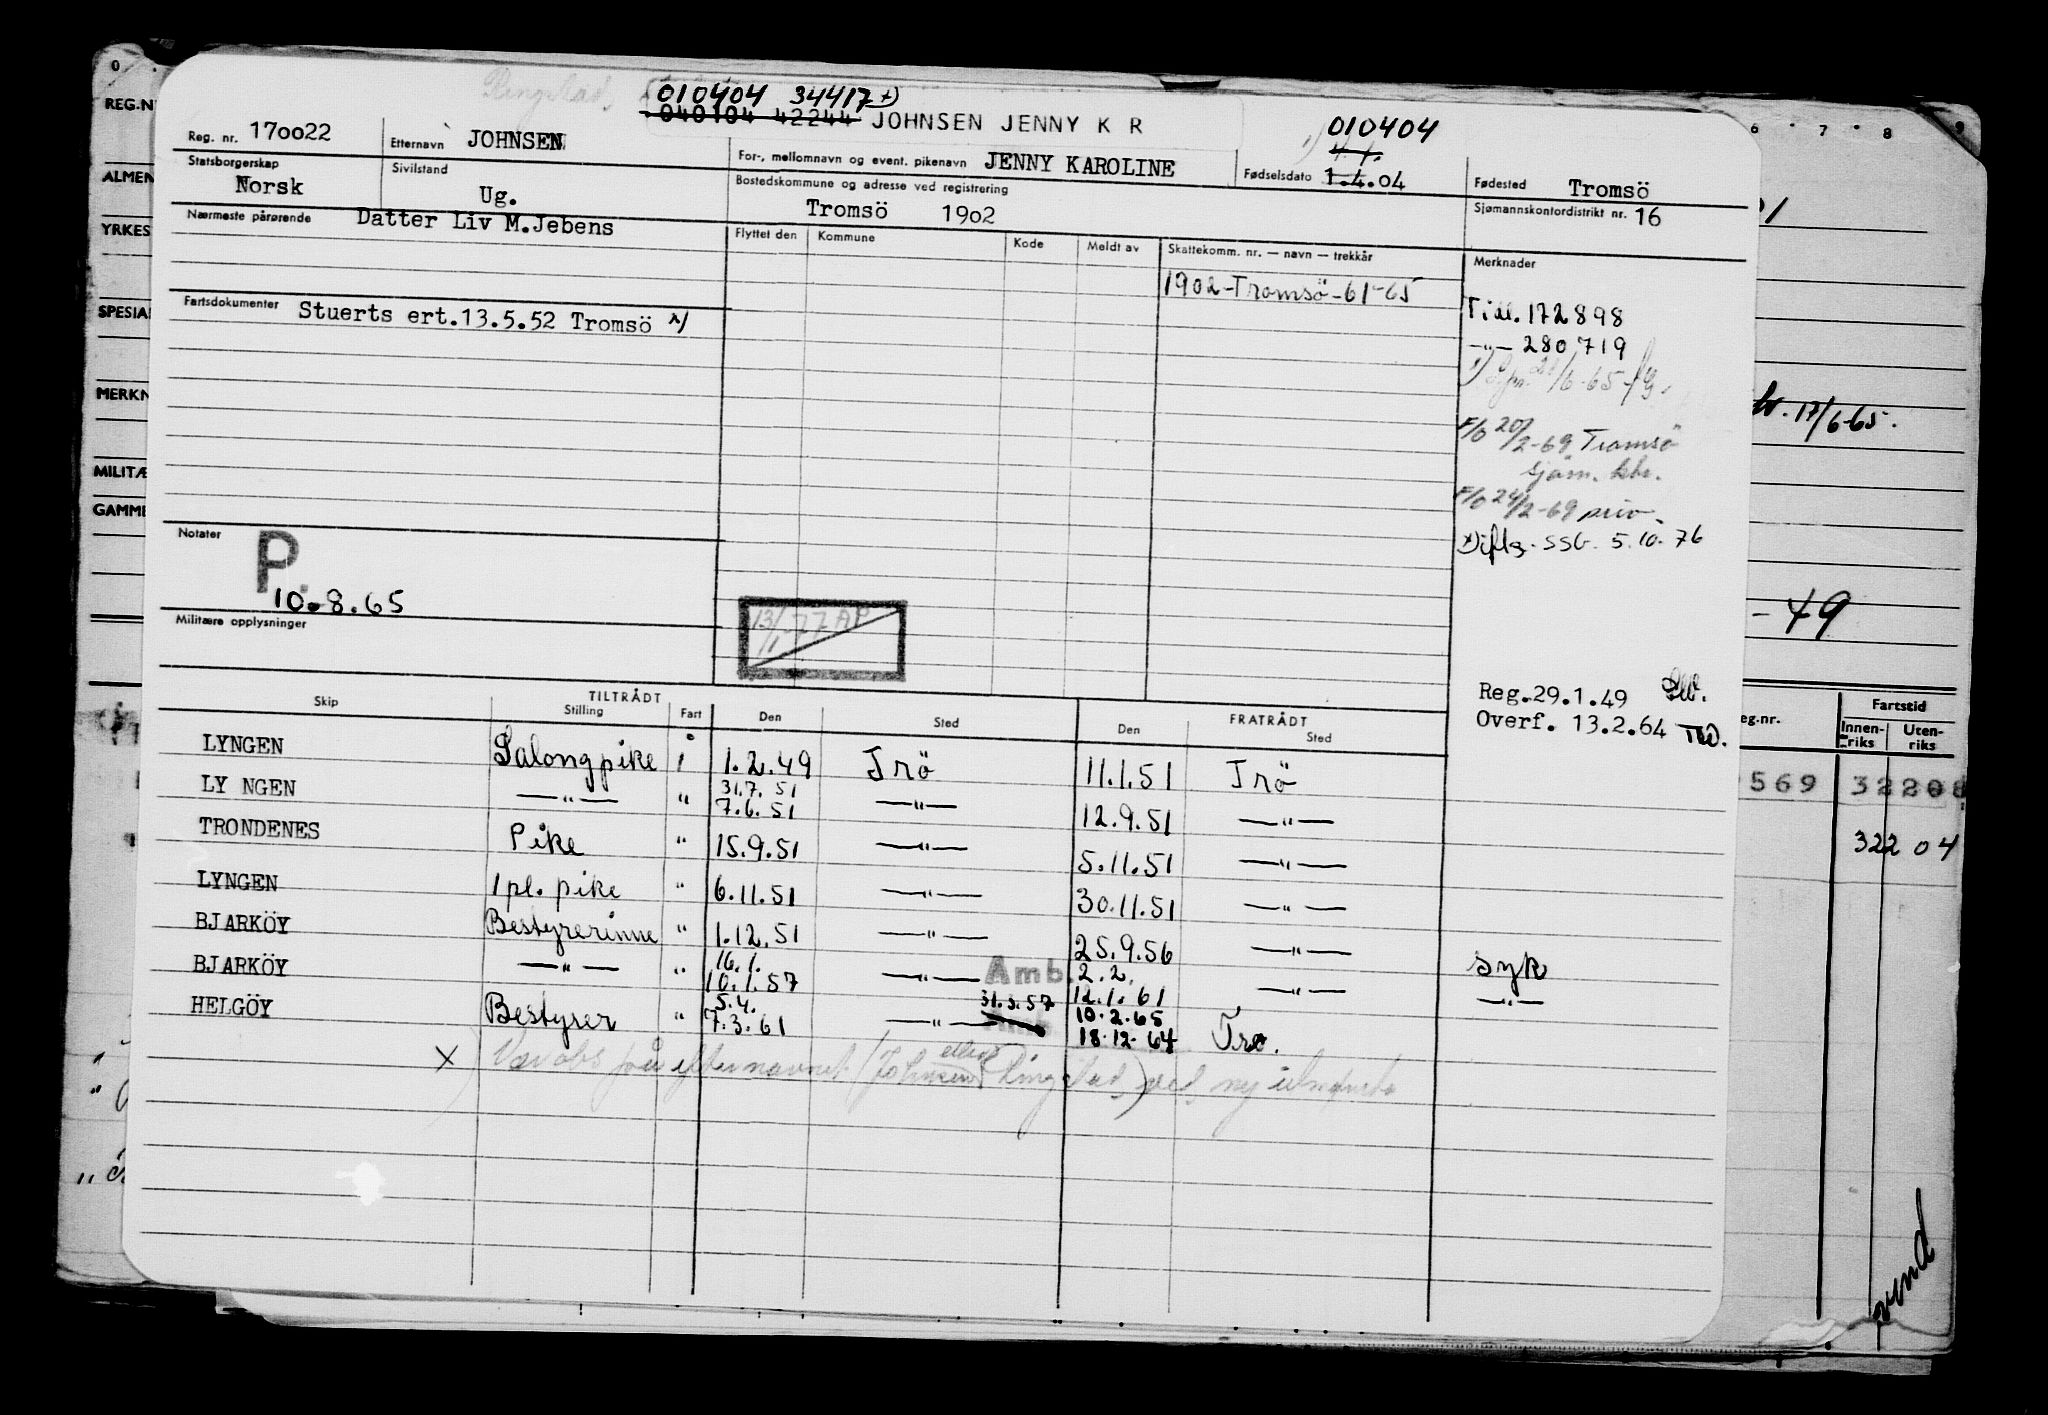 010404 34417 x)
040104 42244 JOHNSEN JENNY K R
Reg. nr. 17oo22
Etternavn JOHNSEN
For-, mellomnavn og event. pikenavn JENNY KAROLINE
1) 010404
Fødselsdato 1.4.04
Fødested Tromsö
Statsborgerskap Norsk
Sivilstand Ug.
Bostedskommune og adresse ved registrering
Tromsö 19o2
Sjømannskontordistrikt nr. 16
Nærmeste pårørende Datter Liv M.Jebens
Flyttet den Kommune Kode Meldt av Skattekomm. nr. — navn — trekkår Merknader
1902-Tromsö-61-65
Fartsdokumenter Stuerts ert.13.5.52 Tromsö
Tidl. 172898
—"— 280719
F/O 20/2-69 Tromsö
sjøm. ktr.
F/O 24/2-69 priv.
x) iflg. SSB. 5.10.76
Notater
P.
10.8.65
13/1-77 AP
Militære opplysninger
Reg.29.1.49
Overf. 13.2.64
Skip TILTRÅDT Stilling Fart Den Sted FRATRÅDT Den Sted
LYNGEN Salongpike i 1.2.49 Trö 11.1.51 Trö
LY NGEN —"— " 31.7.51 7.6.51 —"— 12.9.51 —"—
TRONDENES Pike " 15.9.51 —"— 5.11.51 —"—
LYNGEN 1 pl. pike " 6.11.51 —"— 30.11.51 —"—
BJARKÖY Bestyrerinne " 1.12.51 —"— 25.9.56 —"— syk
BJARKÖY —"— " 16.1. 10.1.57 —"— Amb. 31.3.57 2.2. 12.1.61 —"— —"—
HELGÖY Bestyrer " 5.4. 7.3.61 —"— 10.2.65 18.12.64 Tro.
x Vær obs på efternavnet (Johnsen eller Ringstad,) ved ny
REG.N
ALMEN
YRKES
SPESIA
MERKN
MILITÆ
GAMME
0
6 7 8 9
17/6-65.
- 49
eg.nr.
Fartstid
Innen-riks Uten-riks
569 32208
32204
vend